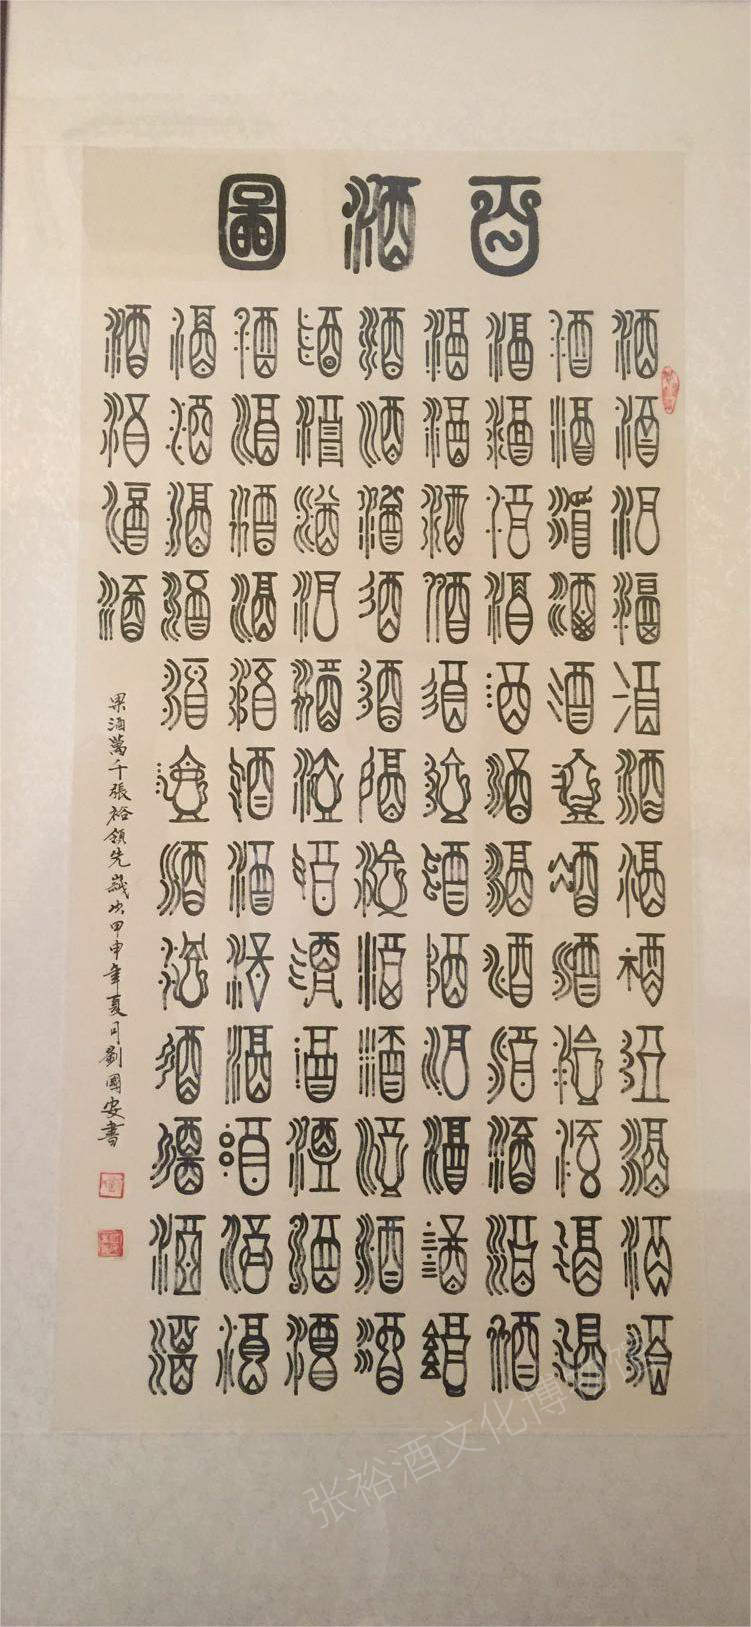 百酒圖
酒酒酒酒酒酒酒酒酒酒酒酒
酒酒酒酒酒酒酒酒酒酒酒酒
酒酒酒酒酒酒酒酒酒酒酒酒
酒酒酒酒酒酒酒酒酒酒酒酒
酒酒酒酒酒酒酒酒酒酒酒酒
酒酒酒酒酒酒酒酒酒酒酒酒
酒酒酒酒酒酒酒酒酒酒酒酒
酒酒酒酒酒酒酒酒酒酒酒酒
酒酒酒酒
果酒萬千張裕領先歲次甲申年夏月劉國安書
张裕酒文化博物馆